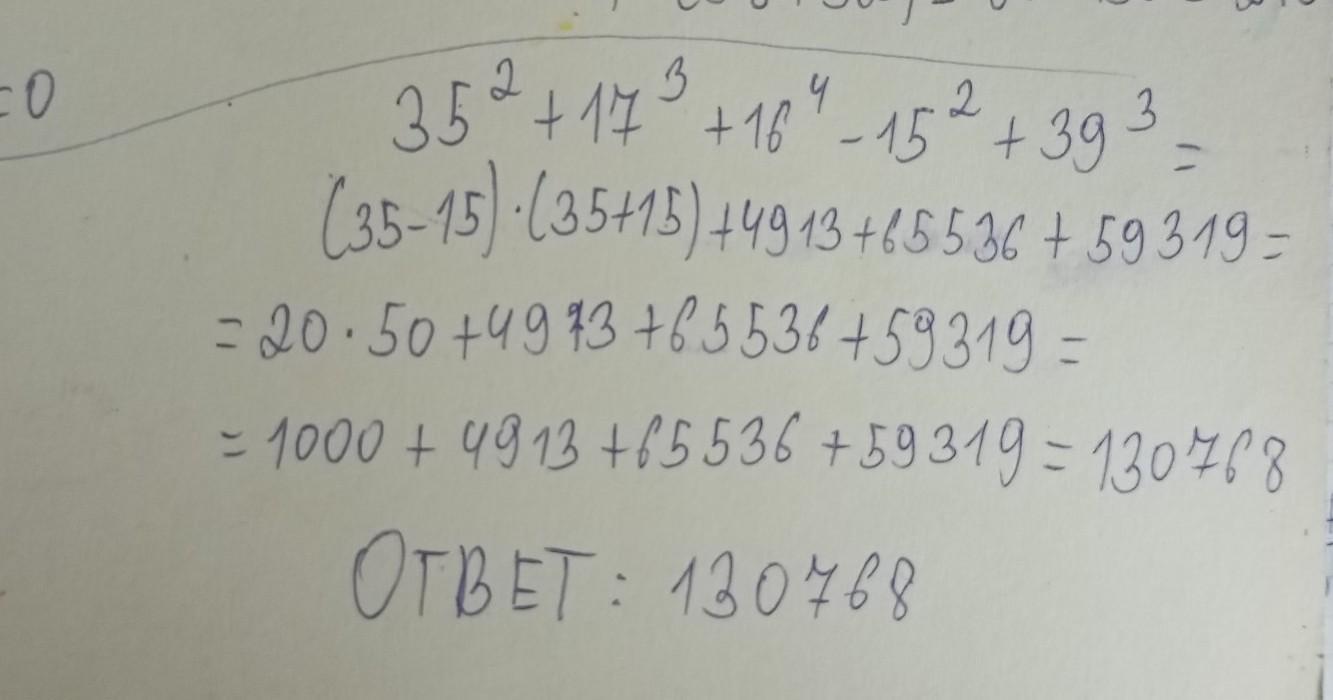 =0
35² +17³ +16⁴ -15² +39³ =
(35-15)·(35+15)+4913+65536+59319=
=20·50+4913+65536+59319=
=1000+4913+65536+59319=130768
ОТВЕТ: 130768